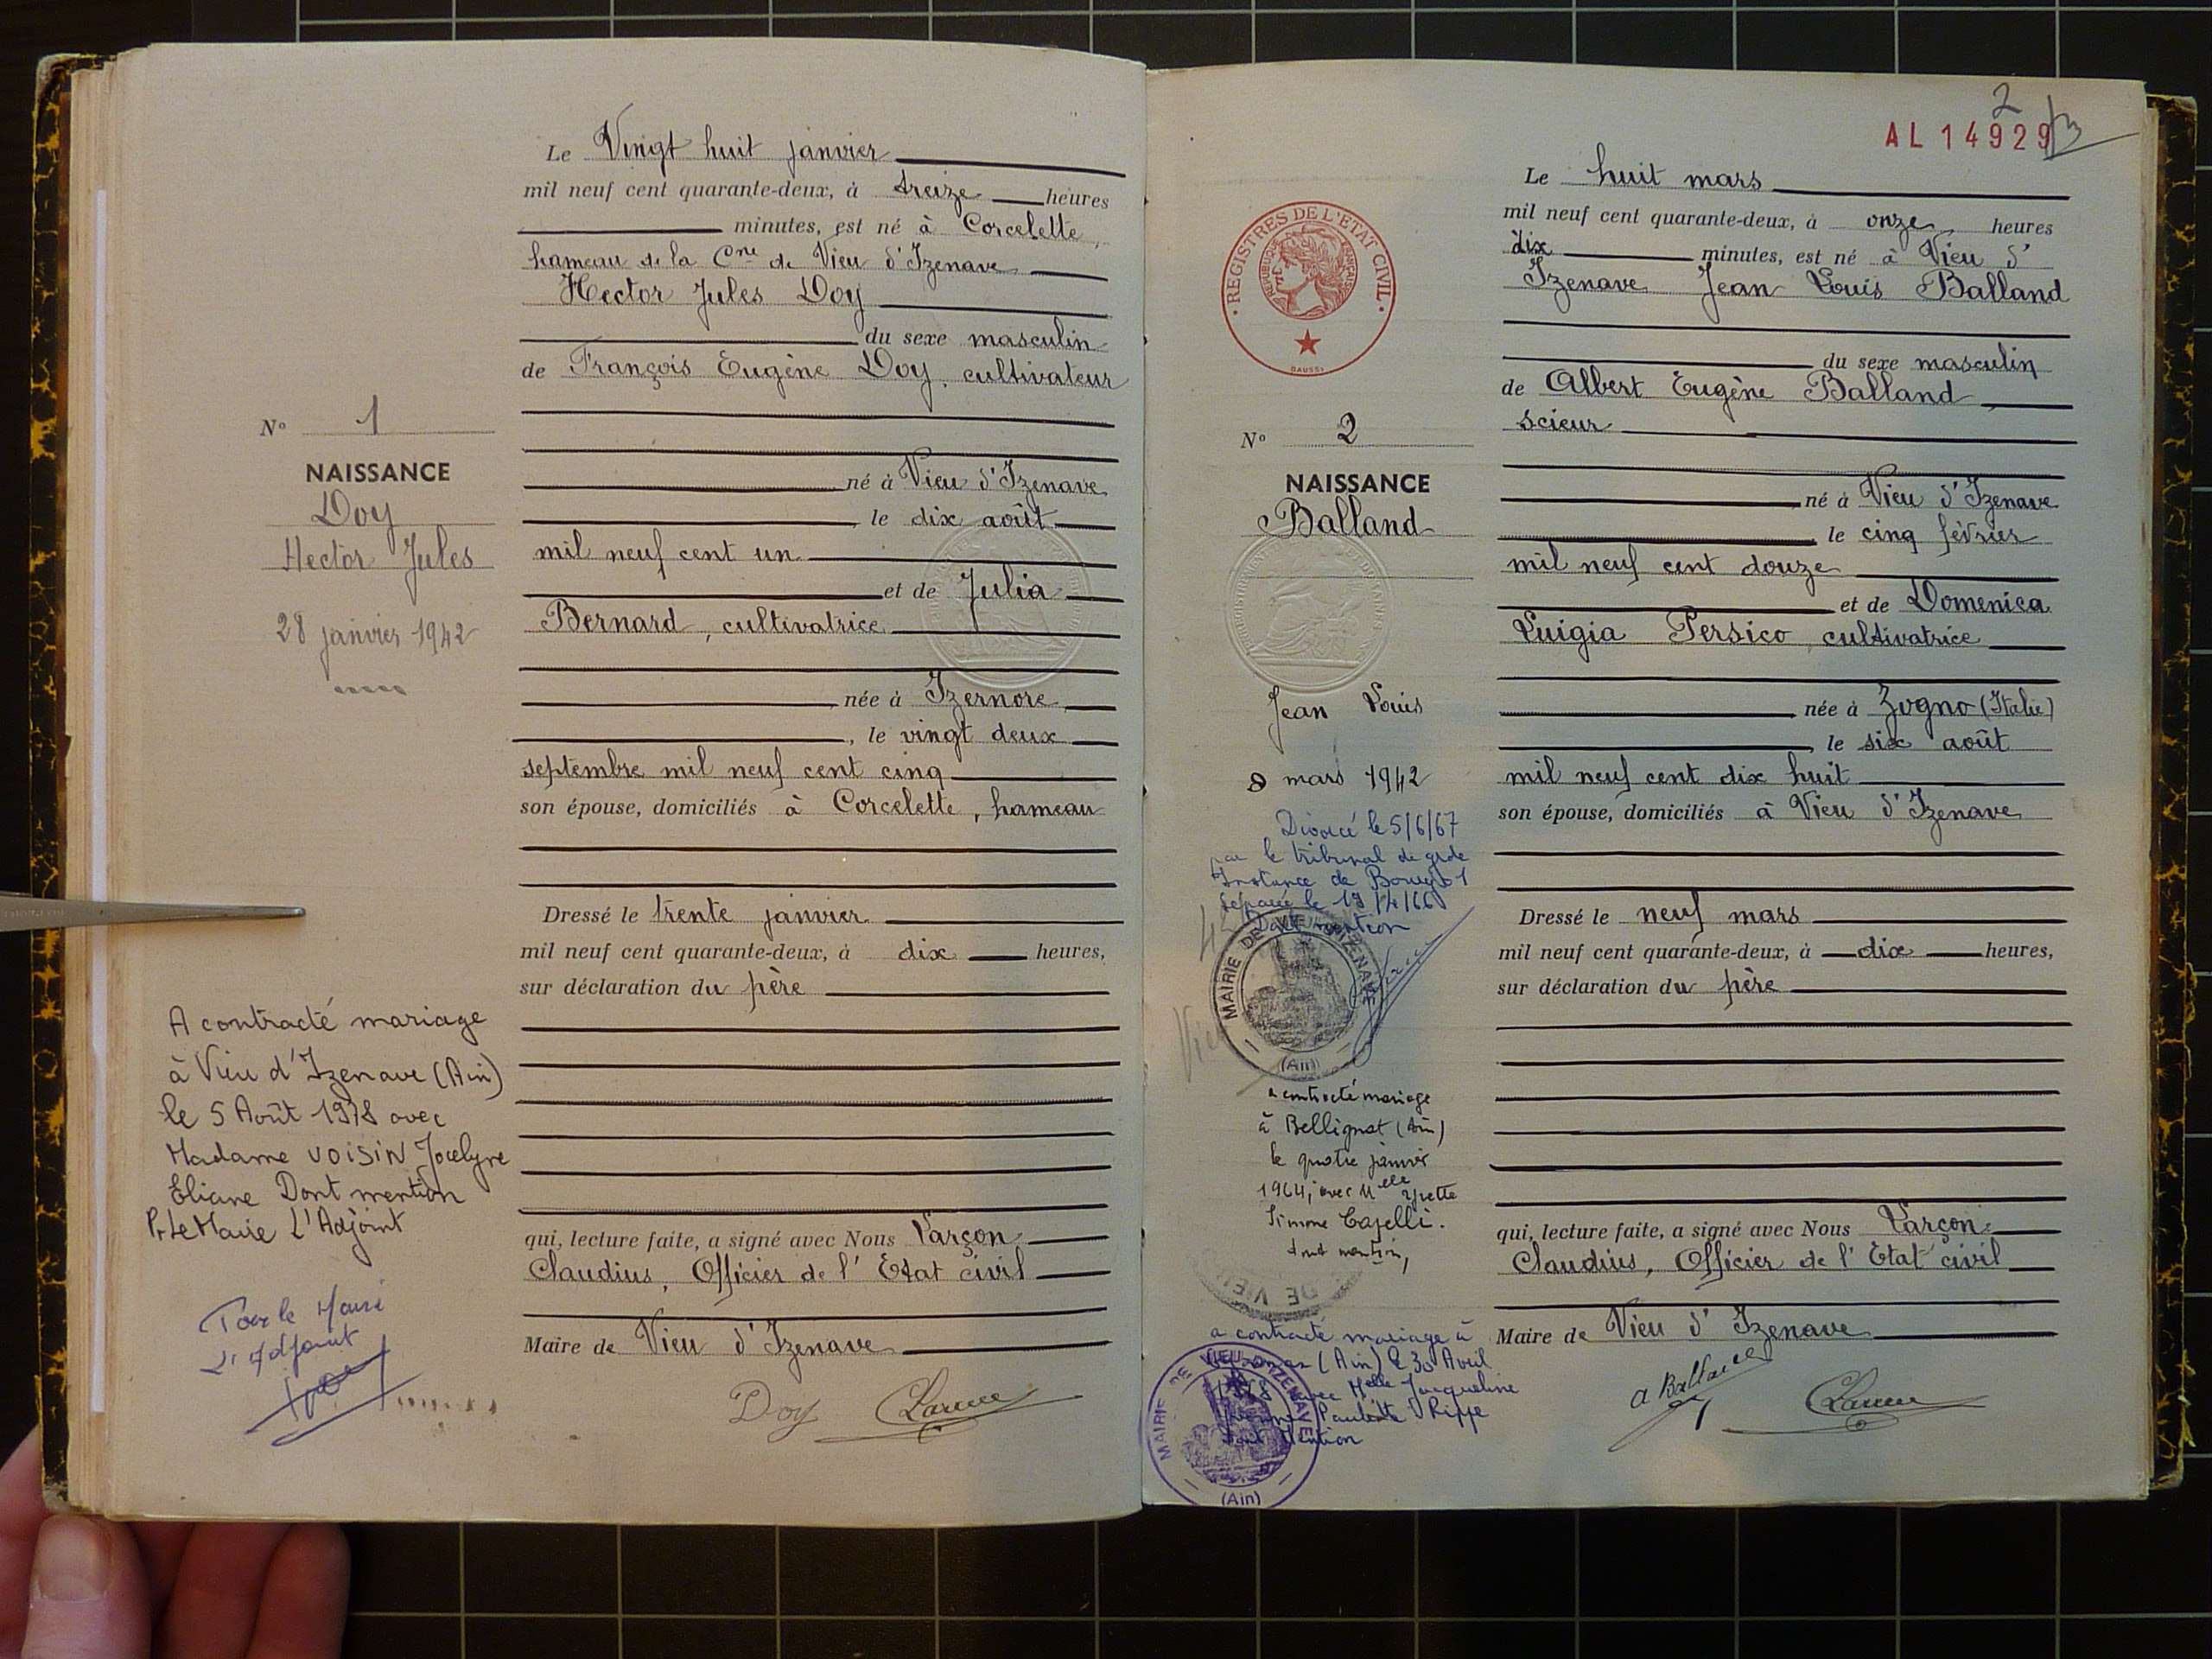 Le Vingt huit janvier
mil neuf cent quarante-deux, à treize heures
minutes, est né à Corcelette,
hameau de la Cne de Vieu d'Izenave
Hector Jules Doy
du sexe masculin
de François Eugène Doy, cultivateur
né à Vieu d'Izenave
, le dix août
mil neuf cent un
et de Julia
Bernard, cultivatrice
née à Izernore
, le vingt deux
septembre mil neuf cent cinq
son épouse, domiciliés à Corcelette, hameau
Dressé le trente janvier
mil neuf cent quarante-deux, à dix heures,
sur déclaration du père
qui, lecture faite, a signé avec Nous Varçon
Claudius, Officier de l'Etat civil
Maire de Vieu d'Izenave
Doy
N° 1
NAISSANCE
Doy
Hector Jules
28 janvier 1942
A contracté mariage
à Vieu d'Izenave (Ain)
le 5 Août 1978 avec
Madame VOISIN Jocelyne
Eliane Dont mention
P. Le Maire L'Adjoint
Pour le Maire
L'Adjoint
2
AL 14929
REGISTRES DE L'ETAT CIVIL
REPUBLIQUE FRANÇAISE
N° 2
NAISSANCE
Balland
Jean Louis
8 mars 1942
Divorcé le 5/6/67
par le tribunal de gde
Instance de Bourg
le
Dont mention
MAIRIE DE VIEU D'IZENAVE
(Ain)
a contracté mariage
à Bellignat (Ain)
le quatre janvier
1964, avec Melle
Simone Capelli.
dont mention,
DE VIEU
a contracté mariage à
(Ain) le 30 Avril
avec Melle Jacqueline
Paulette Rippe
Dont Mention
MAIRIE DE VIEU D'IZENAVE
(Ain)
Le huit mars
mil neuf cent quarante-deux, à onze heures
dix minutes, est né à Vieu d'
Izenave Jean Louis Balland
du sexe masculin
de Albert Eugène Balland,
scieur
né à Vieu d'Izenave
le cinq février
mil neuf cent douze
et de Domenica
Luigia Persico, cultivatrice
née à Zogno (Italie)
, le six août
mil neuf cent dix huit
son épouse, domiciliés à Vieu d'Izenave
Dressé le neuf mars
mil neuf cent quarante-deux, à dix heures,
sur déclaration du père
qui, lecture faite, a signé avec Nous Varçon
Claudius, Officier de l'Etat civil
Maire de Vieu d'Izenave
a Balland